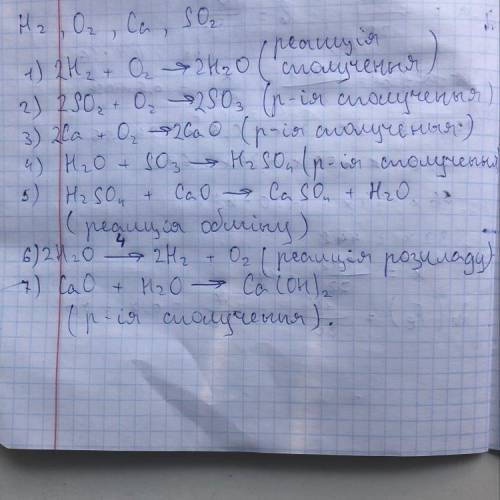 H2, O2, Ca, SO2
1) 2H2 + O2 → 2H2O (реакція сполучення)
2) 2SO2 + O2 → 2SO3 (р-ія сполучення)
3) 2Ca + O2 → 2CaO (р-ія сполучення)
4) H2O + SO3 → H2SO4 (р-ія сполучення)
5) H2SO4 + CaO → CaSO4 + H2O
(реакція обміну)
6) 2H2O → 2H2 + O2 (реакція розкладу)
7) CaO + H2O → Ca(OH)2
(р-ія сполучення).